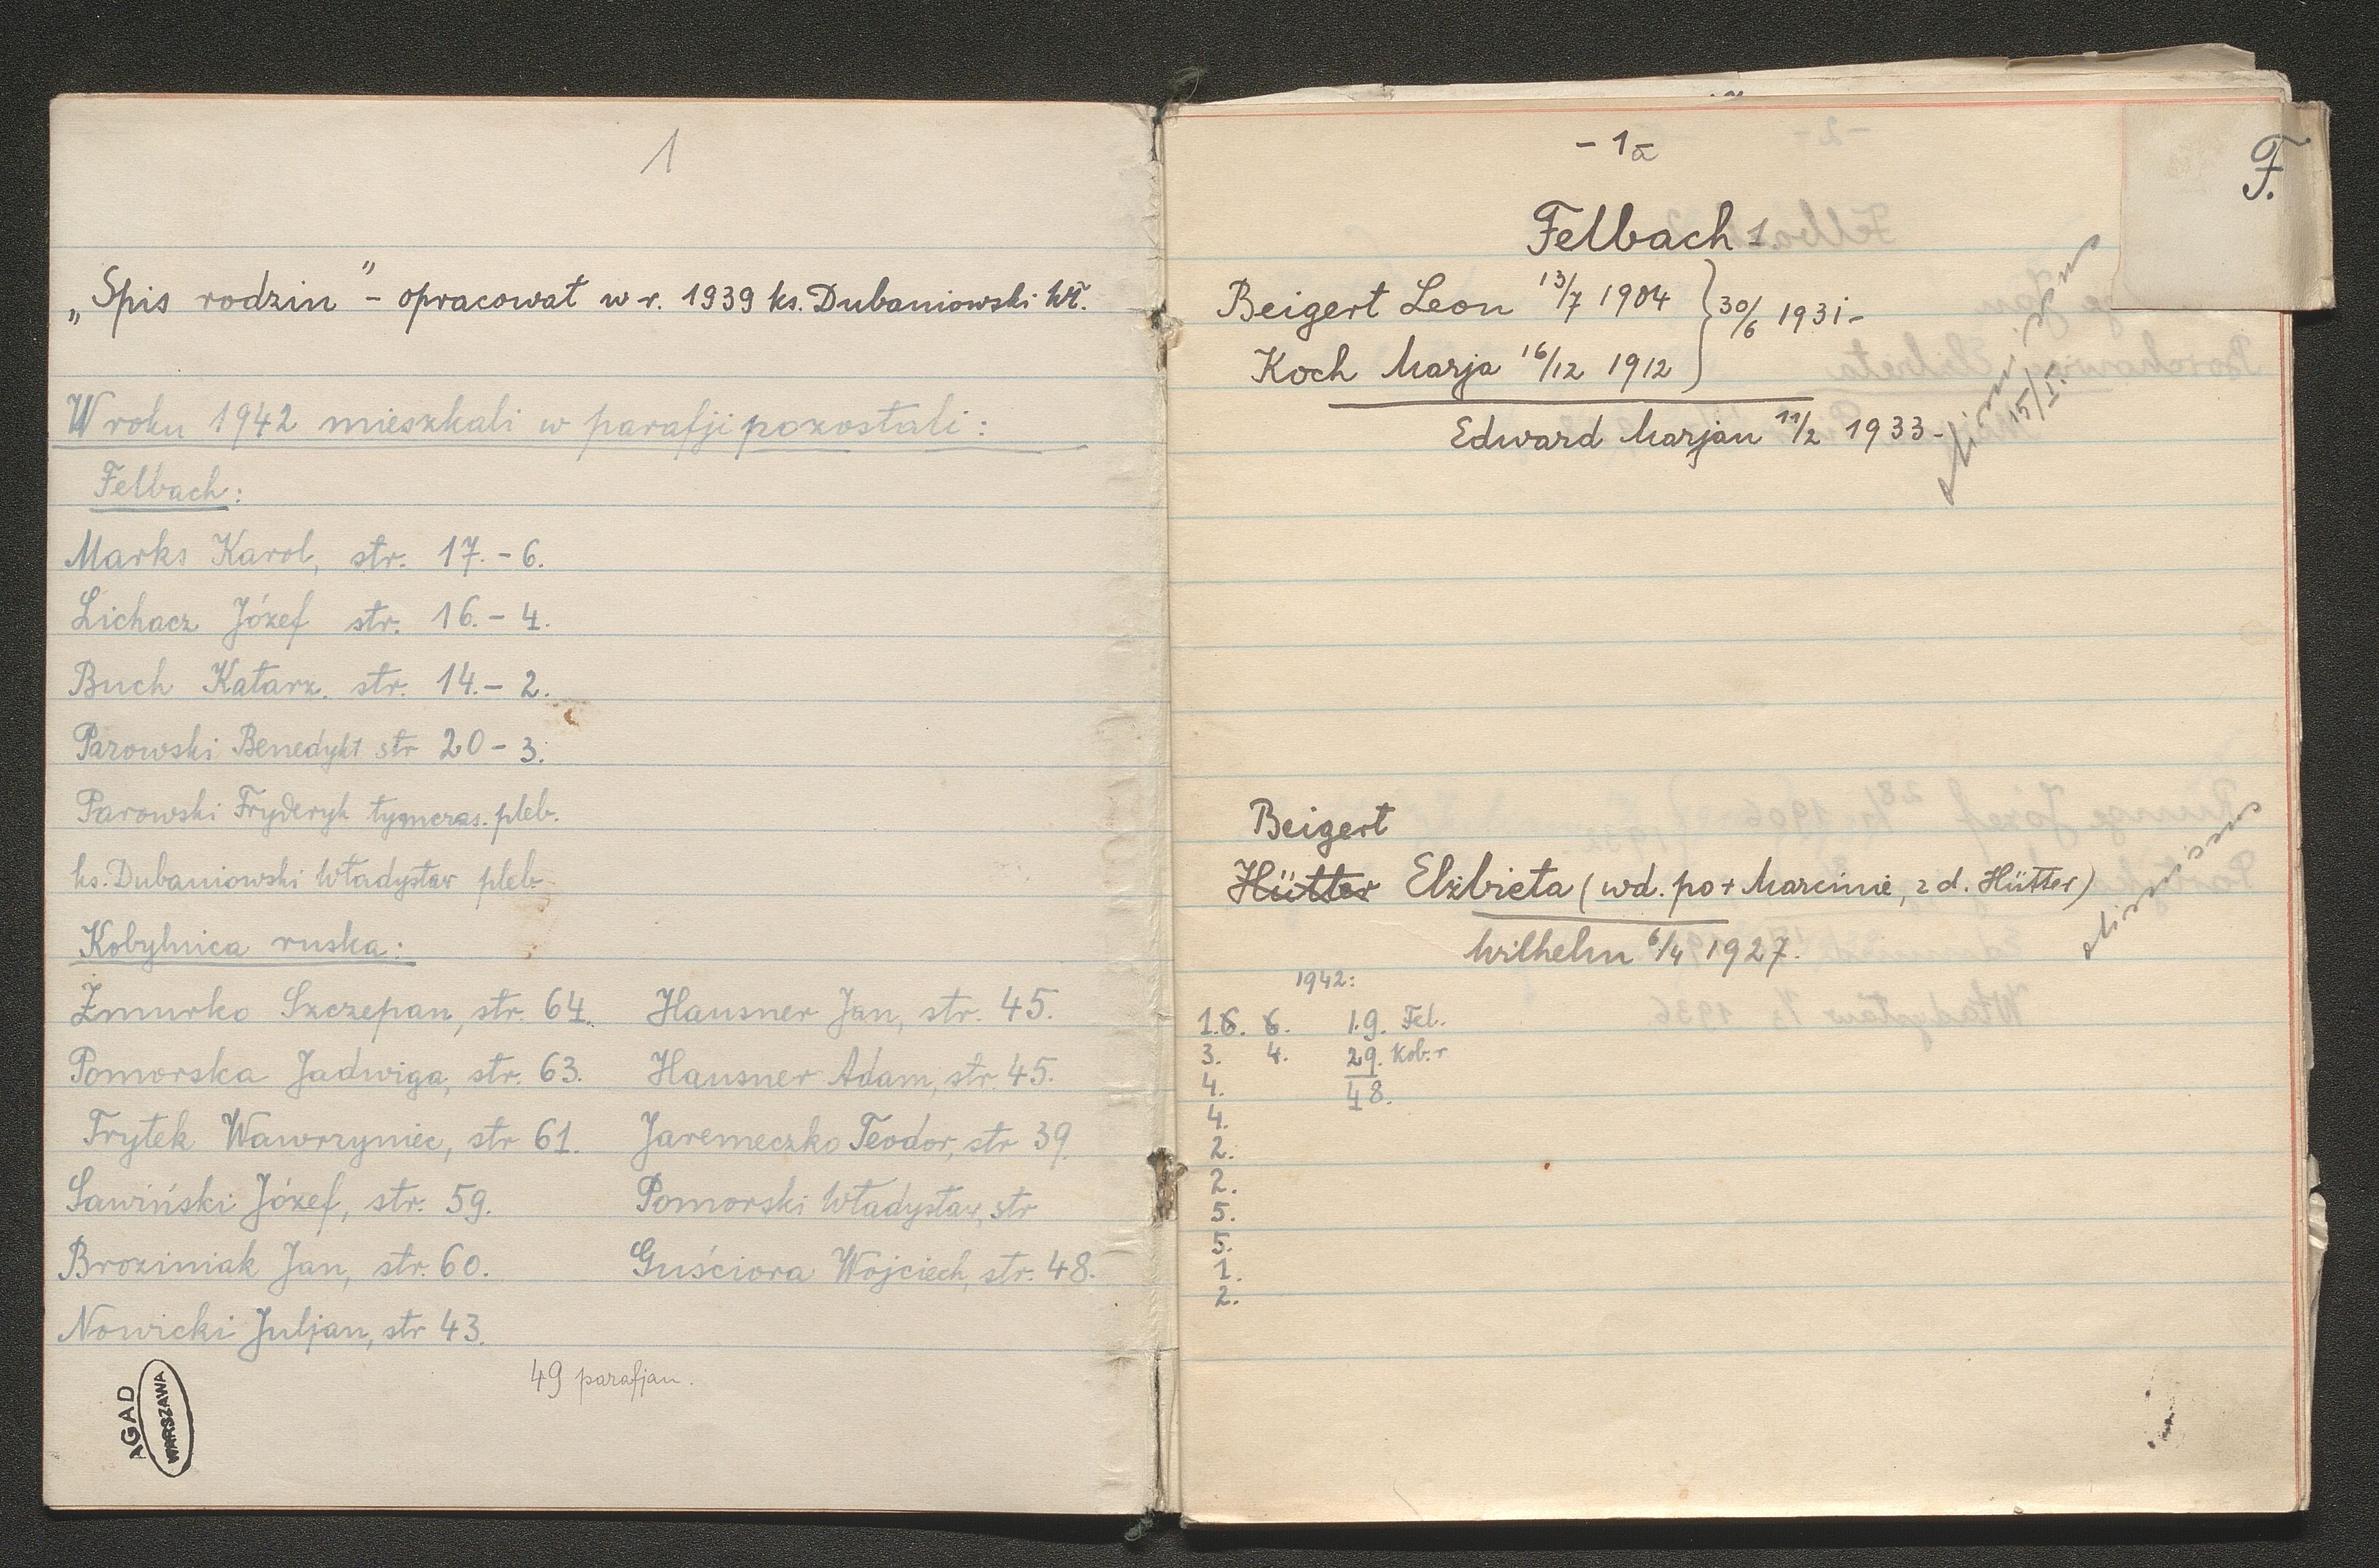 1
„Spis rodzin" - opracował w r. 1939 ks. Dubaniowski Wł.
W roku 1942 mieszkali w parafji pozostali:
Felbach:
Marks Karol, str. 17. - 6.
Lichacz Józef str. 16. - 4.
Buch Katarz. str. 14. - 2.
Parowski Benedykt str 20 - 3.
Parowski Fryderyk tymczas. pleb.
ks. Dubaniowski Władysław pleb.
Kobylnica ruska:
Żmurko Szczepan, str. 64.
Pomorska Jadwiga, str. 63.
Frytek Wawrzyniec, str 61.
Sawiński Józef, str. 59.
Broziniak Jan, str. 60.
Nowicki Juljan, str 43.
Hausner Jan, str. 45.
Hausner Adam, str. 45.
Jaremeczko Teodor, str 39.
Pomorski Władysław, str
Guściora Wojciech, str. 48.
49 parafjan.
AGAD
WARSZAWA
- 1a
F.
Felbach 1.
Beigert Leon 13/7 1904 } 30/6 1931 -
Koch Marja 16/12 1912
Edward Marjan 11/2 1933 -
15/I.
Beigert
Hütter Elżbieta (wd. po + Marcinie, z d. Hütter)
Wilhelm 6/4 1927.
1942:
1.6. 6. 19. Fel.
3. 4. 29. Kob. r
4. 48.
4.
2.
2.
5.
5.
1.
2.